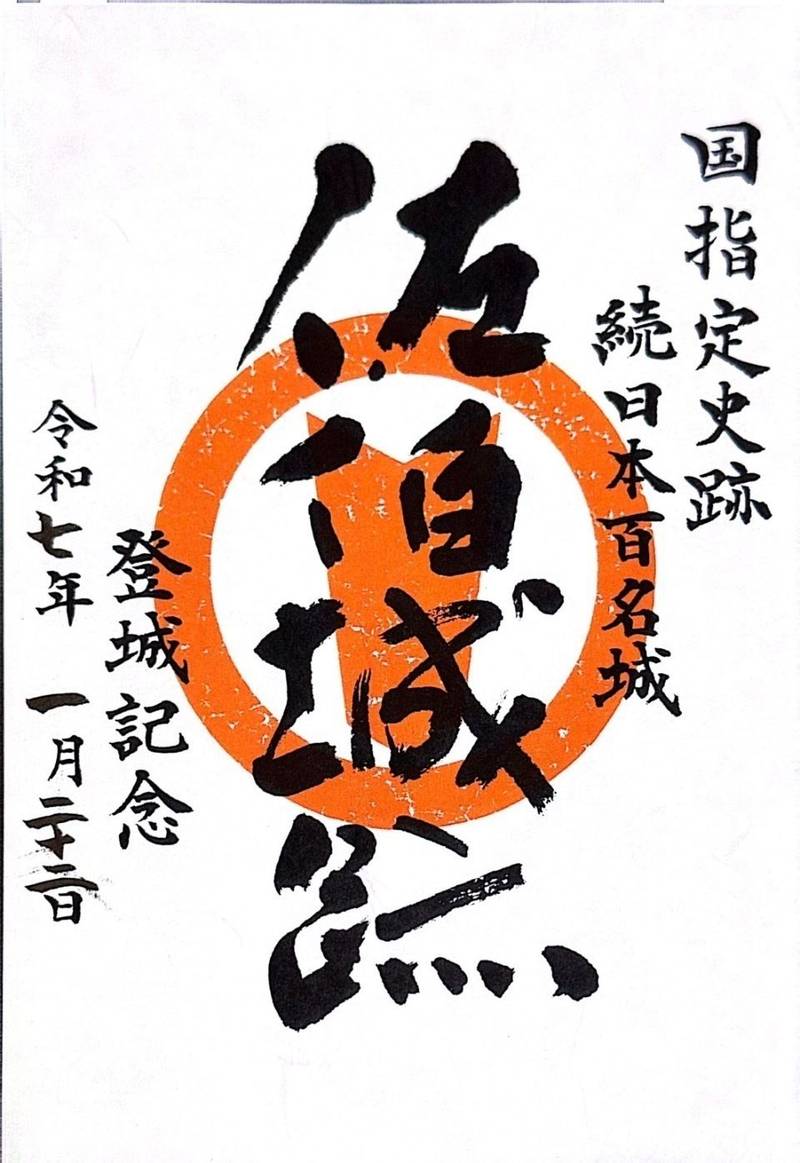 国指定史跡
続日本百名城
佐伯城跡
登城記念
令和七年 一月二十二日